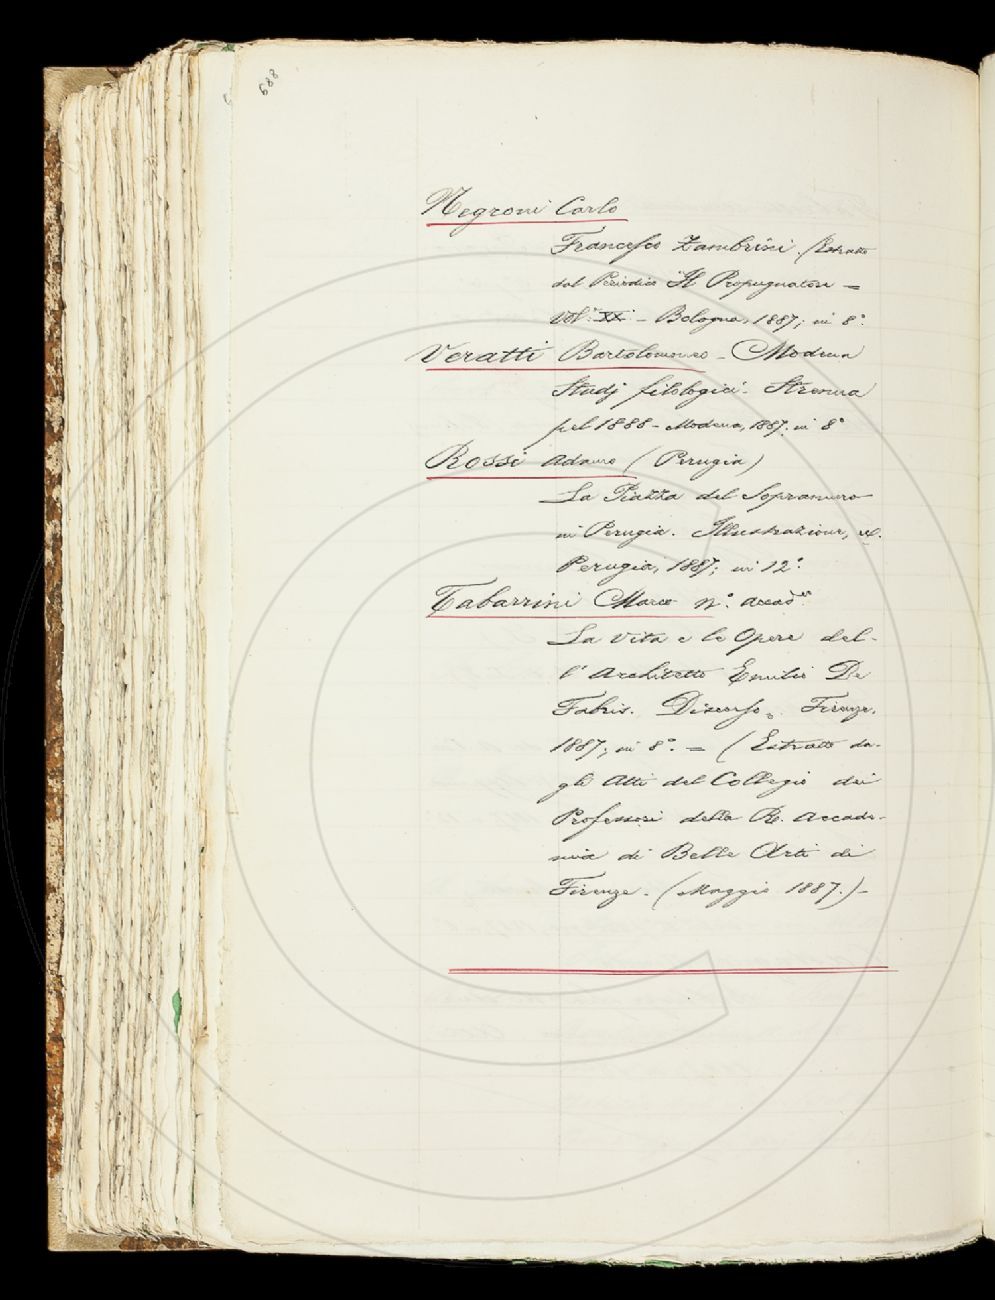 688
Negroni Carlo
Francesco Zambrini. (Estratto
dal Periodico Il Propugnatore =
Vol. XX. - Bologna, 1887; in 8°.
Veratti Bartolomeo - Modena
Studj filologici. Strenna
pel 1888 - Modena, 1887. in 8°
Rossi Adamo (Perugia)
La Piazza del Sopramuro
in Perugia. Illustrazione,
Perugia, 1887; in 12°.
Tabarrini Marco n°. accad.co
La vita e le Opere del-
l'Architetto Emilio De
Fabris. Discorso. Firenze.
1887; in 8°. = (Estratto da-
gli Atti del Collegio dei
Professori della R. Accade-
mia di Belle Arti di
Firenze. (Maggio 1887.) -